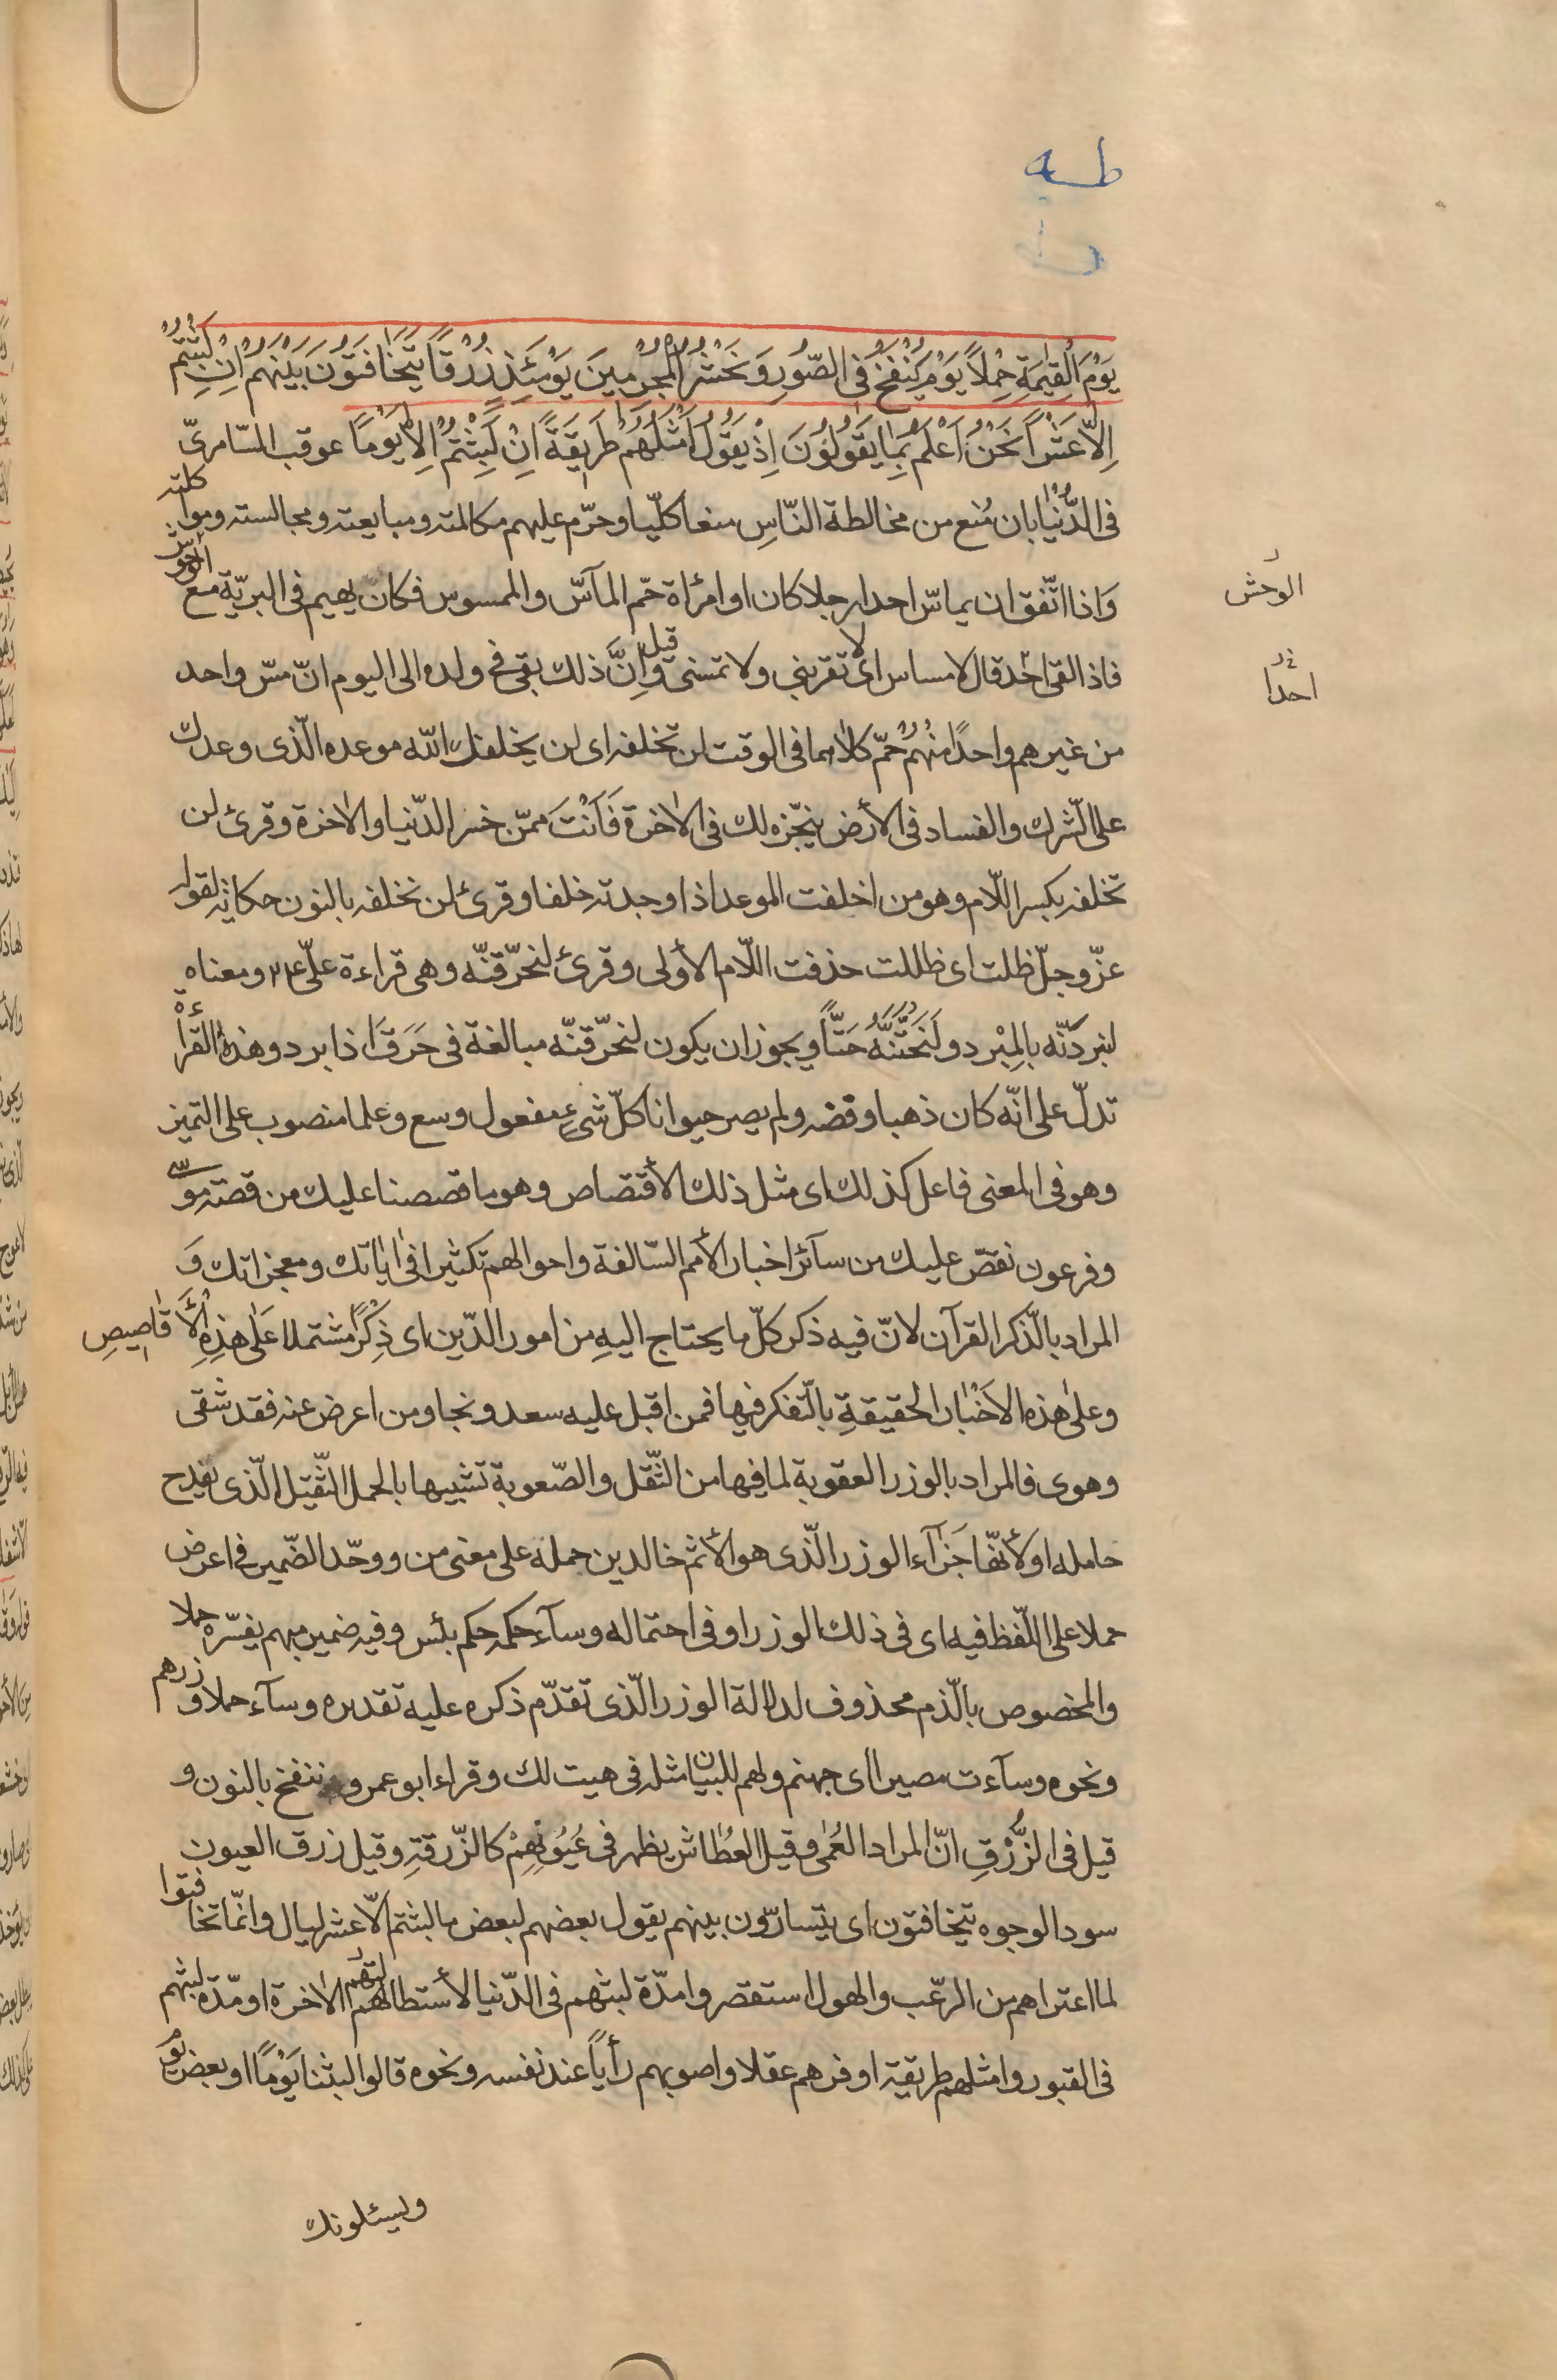 طه
يَوْمَ الْقِيٰمَةِ حِمْلاً يَوْمَ يُنْفَخُ فِى الصُّورِ وَنَحْشُرُ الْمُجْرِمِينَ يَوْمَئِذٍ زُرْقاً يَتَخَافَتُونَ بَيْنَهُمْ اِنْ لَبِثْتُمْ
اِلاَّ عَشْراً نَحْنُ اَعْلَمُ بِمَا يَقُولُونَ اِذْ يَقُولُ اَمْثَلُهُمْ طَرِيقَةً اِنْ لَبِثْتُمْ اِلاَّ يَوْمًا عوقب السّامرىّ
فى الدُّنْيَا بان مُنع من مخالطة النّاسِ منعا كلّيا وحرّم عليهم مكالمته ومبايعته ومجالسته ومواكلته
وَاذا اتّفق ان يماسّ احدا رجلا كان او امرأة حمّ المآسّ والممسوس فكان يهيم فى البريّة مع الوحوش
الوحش
فاذا لقى احَد قال لا مساس اى لا تقربني ولا تمسنى وقيل اِنَّ ذلك بقى فى ولده الى اليوم انّ مسّ واحد
احدا
من غيرهم واحدًا منهُمْ حُمّ كلاهما فى الوقت لن تخلفه اى لن يخلفك اللّه موعده الّذى وعدك
على الشّرك والفساد فى الأرض ينجّزه لك فى الاخرة فَاَنْتَ ممّن خسر الدّنيا والاخرة وقرئ لن
تخلفه بكسر اللّام وهو من اخلفت الموعد اذا وجدته خلفا وقرئ لن نخلفه بالنون حكاية لقوله
عزّ وجلّ ظلت اى ظللت حذفت اللّام الأولى وقرئ لنحرّقنّه وهى قراءة علىّ ع ومعناه
لنبردَنّه بالمِبْرد ولَنَحُتَّنَّهُ حَتًّا ويجوز ان يكون لنحرّقنّه مبالغة فى حَرَقَ اذا برد وهذه القرأة
تدلّ على انّه كان ذهبا وفضه ولم يصر حيوانا كلّ شئٍ مفعول وسع وعلما منصوب على التميز
وهو فى المعنى فاعل كذلك اى مثل ذلك الأقتصاص وهو ما قصصنا عليك من قصّة موسى
وفرعون نقصّ عليك من سآئر اخبار الأمم السّالفة واحوالهم تكثيرا فى اياتك ومعجزاتك وَ
المراد بالّذكر القرآن لانّ فيه ذكر كلّ ما يحتاج اليهِ من امور الدّين اى ذِكْرًا مشتملا عَلٰى هٰذِهِ الأقاصيصِ
وعلىٰ هٰذه الاَخْبَار الحقيقةِ بالتّفكر فيها فمن اقبل عليه سعد ونجا ومن اعرض عنه فقد شقى
وهوى فالمراد بالوزر العقوبة لما فيها من الثّقل والصّعوبة تشبيها بالحمل الثّقيل الّذى يفدح
حامله او لأنّها جَزآء الوزر الّذى هو الأثم خالدين حمله على معنى من ووحّد الضّمير فى اعرض
حملا على اللّفظ فيه اى فى ذلك الوزر او فى احتماله وسآء حكمه حكم بئس وفيه ضمير مبهم يفسّره حملا
والمخصوص بالذّم محذوف لدلالة الوزر الّذى تقدّم ذكره عليه تقديره وسآء حملا وزرهم
ونحوه وسآءت مصيرا اى جهنم ولهم للبيان مثله فى هيت لك وقراء ابو عمرو ننفخ بالنون و
قيل فى الزُّرْقِ انّ المراد العُمْى وقيل العُطاش يظهر فى عُيُونِهِمْ كالزّرقةِ وقيل زرق العيون
سود الوجوه يتخافتون اى يتسارّون بينهم يقول بعضهم لبعض ما لبثتم الّا عشر ليال وانّما تخافتوا
لما اعتراهم من الرّعب والهول استقصروا مدّة لبثهم فى الدّنيا لأستطالتهم الاخرة او مدّة لبثهم
فى القبور وامثلهم طريقة اوفرهم عقلا واصوبهم رأياً عند نفسه ونحوه قالوا لبثنا يَوْمًا او بعض يوم
وليسئلونك